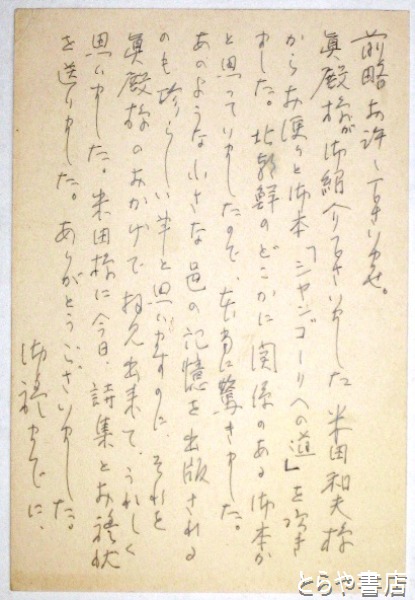 前略お許し下さいませ。
眞殿様が御紹介下さいました 米田和夫様
からお便りと御本「シャンゴーリへの道」を頂き
ました。北朝鮮のどこかに関係のある御本か
と思っていましたので、本当に驚きました。
あのような小さな邑の記憶を出版される
のも珍らしい事と思いますのに、それを
眞殿様のおかげで拝見出来て、うれしく
思いました。米田様に今日、詩集とお禮状
を送りました。ありがとうございました。
御禮までに、
とらや書店